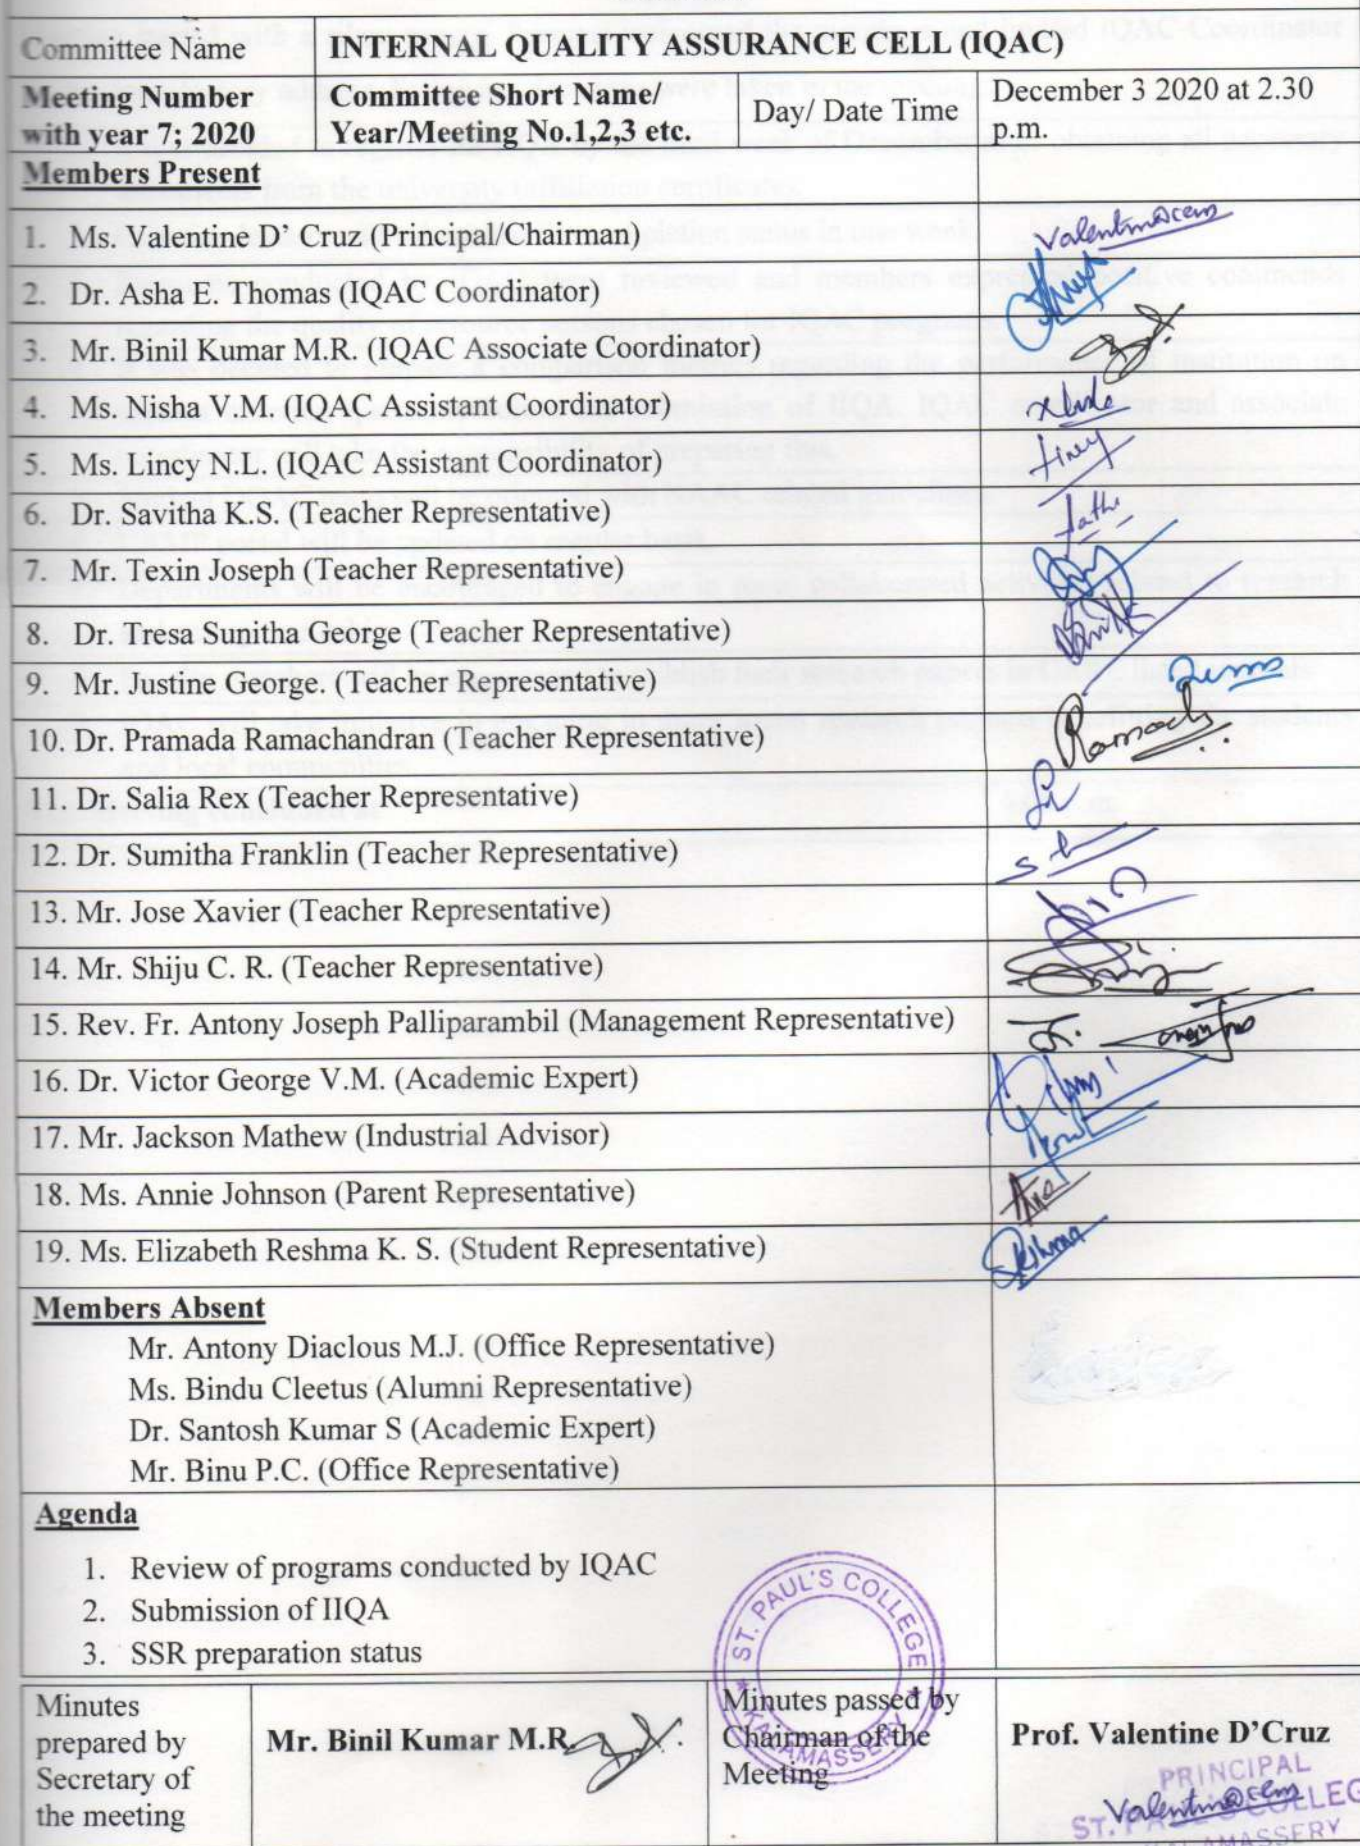 Committee Name
INTERNAL QUALITY ASSURANCE CELL (IQAC)
Meeting Number
with year 7; 2020
Committee Short Name/
Year/Meeting No.1,2,3 etc.
Day/ Date Time
December 3 2020 at 2.30
p.m.
Members Present
1. Ms. Valentine D' Cruz (Principal/Chairman)
2. Dr. Asha E. Thomas (IQAC Coordinator)
3. Mr. Binil Kumar M.R. (IQAC Associate Coordinator)
4. Ms. Nisha V.M. (IQAC Assistant Coordinator)
5. Ms. Lincy N.L. (IQAC Assistant Coordinator)
6. Dr. Savitha K.S. (Teacher Representative)
7. Mr. Texin Joseph (Teacher Representative)
8. Dr. Tresa Sunitha George (Teacher Representative)
9. Mr. Justine George. (Teacher Representative)
10. Dr. Pramada Ramachandran (Teacher Representative)
11. Dr. Salia Rex (Teacher Representative)
12. Dr. Sumitha Franklin (Teacher Representative)
13. Mr. Jose Xavier (Teacher Representative)
14. Mr. Shiju C. R. (Teacher Representative)
15. Rev. Fr. Antony Joseph Palliparambil (Management Representative)
16. Dr. Victor George V.M. (Academic Expert)
17. Mr. Jackson Mathew (Industrial Advisor)
18. Ms. Annie Johnson (Parent Representative)
19. Ms. Elizabeth Reshma K. S. (Student Representative)
Members Absent
Mr. Antony Diaclous M.J. (Office Representative)
Ms. Bindu Cleetus (Alumni Representative)
Dr. Santosh Kumar S (Academic Expert)
Mr. Binu P.C. (Office Representative)
Agenda
1. Review of programs conducted by IQAC
2. Submission of IIQA
3. SSR preparation status
ST. PAUL'S COLLEGE
KALAMASSERY
Minutes
prepared by
Secretary of
the meeting
Mr. Binil Kumar M.R.
Minutes passed by
Chairman of the
Meeting
Prof. Valentine D'Cruz
PRINCIPAL